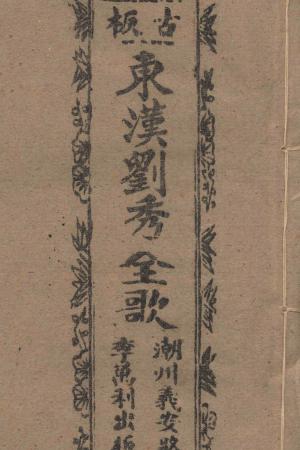 古板
東漢劉秀全歌
潮州義安路
李萬利出板